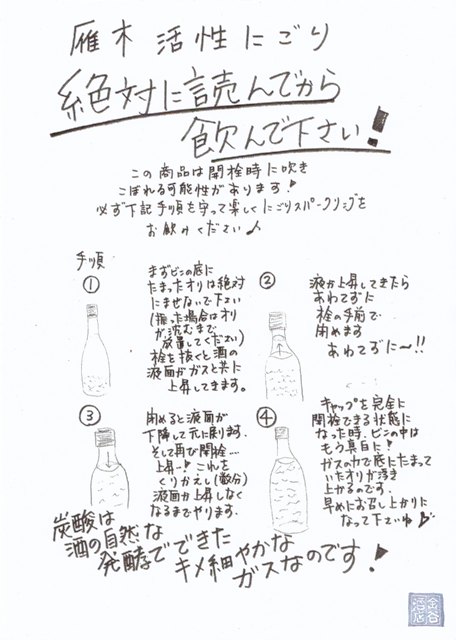 雁木 活性にごり
絶対に読んでから
飲んで下さい!
この商品は開栓時に吹き
こぼれる可能性があります!
必ず下記手順を守って楽しくにごりスパークリングを
お飲みください♪
手順
①
まずビンの底に
たまったオリは絶対
にませないで下さい
(振った場合はオリ
が沈むまで
放置してください)
栓を抜くと酒の
液面がガスと共に
上昇してきます。
②
液が上昇してきたら
あわてずに
栓の手前で
閉めます
あわてずに〜!!
③
閉めると液面が
下降して元に戻ります。
そして再び開栓…
上昇…! これを
くりかえし(数分)
液面が上昇しなく
なるまでやります。
④
キャップを完全に
開栓できる状態に
なった時、ビンの中は
もう真白に!
ガスの力で底にたまって
いたオリが浮き
上がるのです。
早めにお召し上がりに
なって下さいね
炭酸は
酒の自然な
発酵でできた
キメ細やかな
ガスなのです!
金谷
酒店